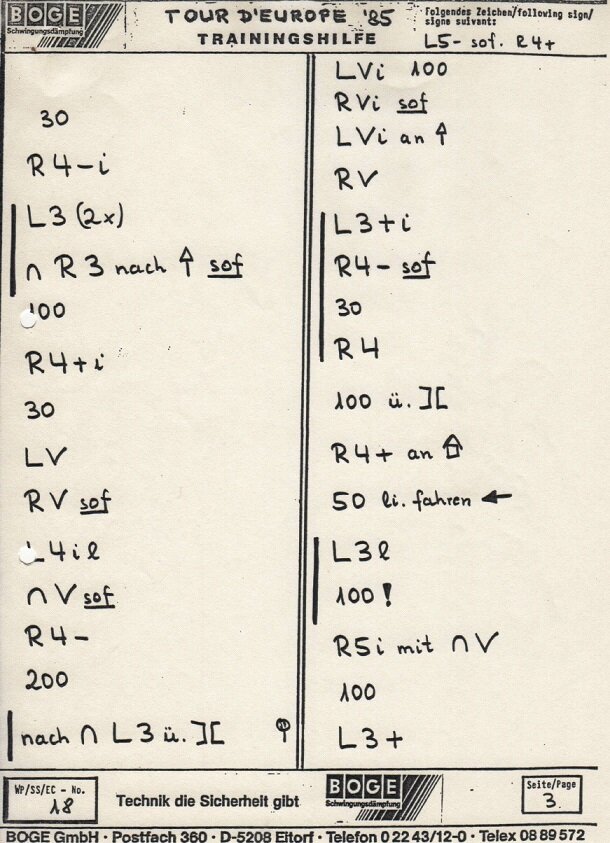 BOGE
Schwingungsdämpfung
TOUR D'EUROPE '85
TRAININGSHILFE
Folgendes Zeichen/following sign/
signe suivant:
L5- sof. R4+
30
R4-i
L3 (2x)
∩ R3 nach ↑ sof
100
R4+i
30
LV
RV sof
L4il
∩ V sof
R4-
200
nach ∩ L3 ü. ][
LVi 100
RVi sof
LVi an ↑
RV
L3+i
R4- sof
30
R4
100 ü. ][
R4+ an
50 li. fahren ←
L3l
100!
R5i mit ∩ V
100
L3+
WP/SS/EC - No.
18
Technik die Sicherheit gibt
BOGE
Schwingungsdämpfung
Seite/Page
3
BOGE GmbH · Postfach 360 · D-5208 Eitorf · Telefon 0 22 43/12-0 · Telex 08 89 572